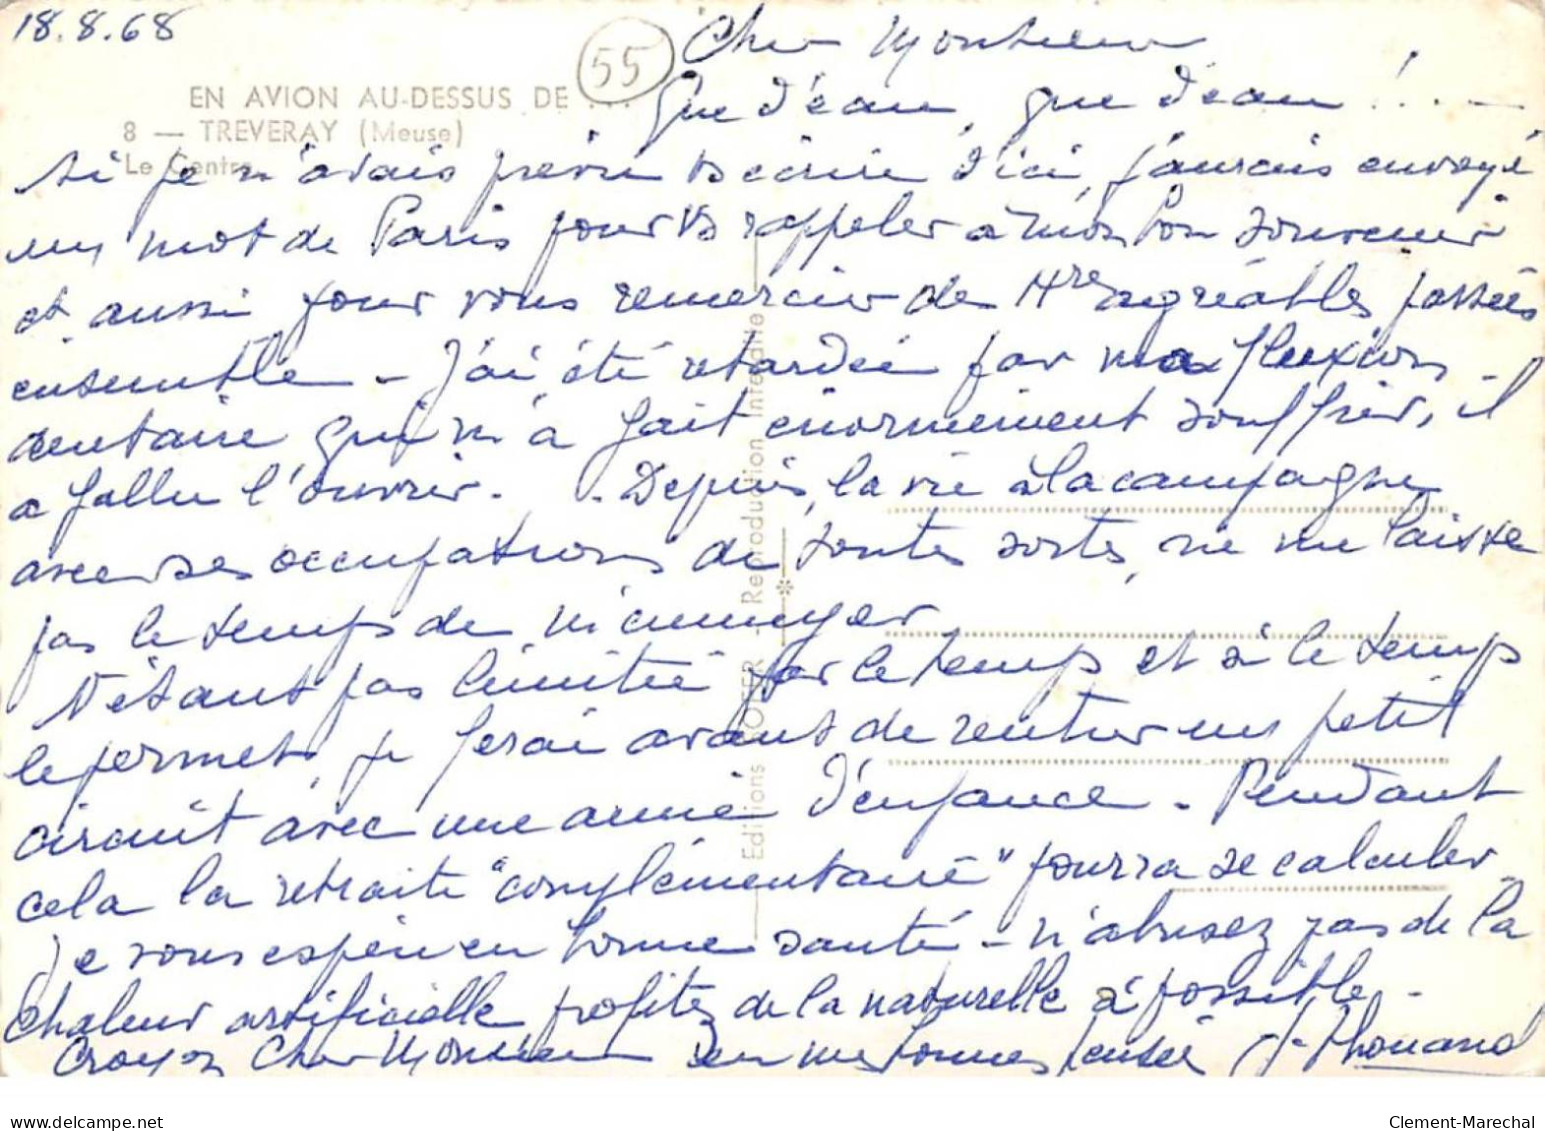 18.8.68
55
EN AVION AU-DESSUS DE ...
8 — TREVERAY (Meuse)
Le Centre
Editions SOFER - Reproduction Interdite
Cher Monsieur
Que d'eau, que d'eau !...
si je n'avais prévu vs écrire d'ici, j'aurais envoyé
un mot de Paris pour vs rappeler à mon bon souvenir
et aussi pour vous remercier des Hres agréables passées
ensemble - J'ai été retardée par ma fluxion
dentaire qui m'a fait énormément souffrir, il
a fallu l'ouvrir. - Depuis, la vie à la campagne
avec ses occupations de toutes sortes, ne me laisse
pas le temps de m'ennuyer
N'étant pas limitée par le temps et si le temps
le permet, je ferai avant de rentrer un petit
circuit avec une amie d'enfance - Pendant
cela la retraite "complémentaire" pourra se calculer
Je vous espère en bonne santé - n'abusez pas de la
chaleur artificielle profitez de la naturelle si possible -
Croyez Cher Monsieur en mes bonnes pensées J. Thouand
delcampe.net
Clement-Marechal